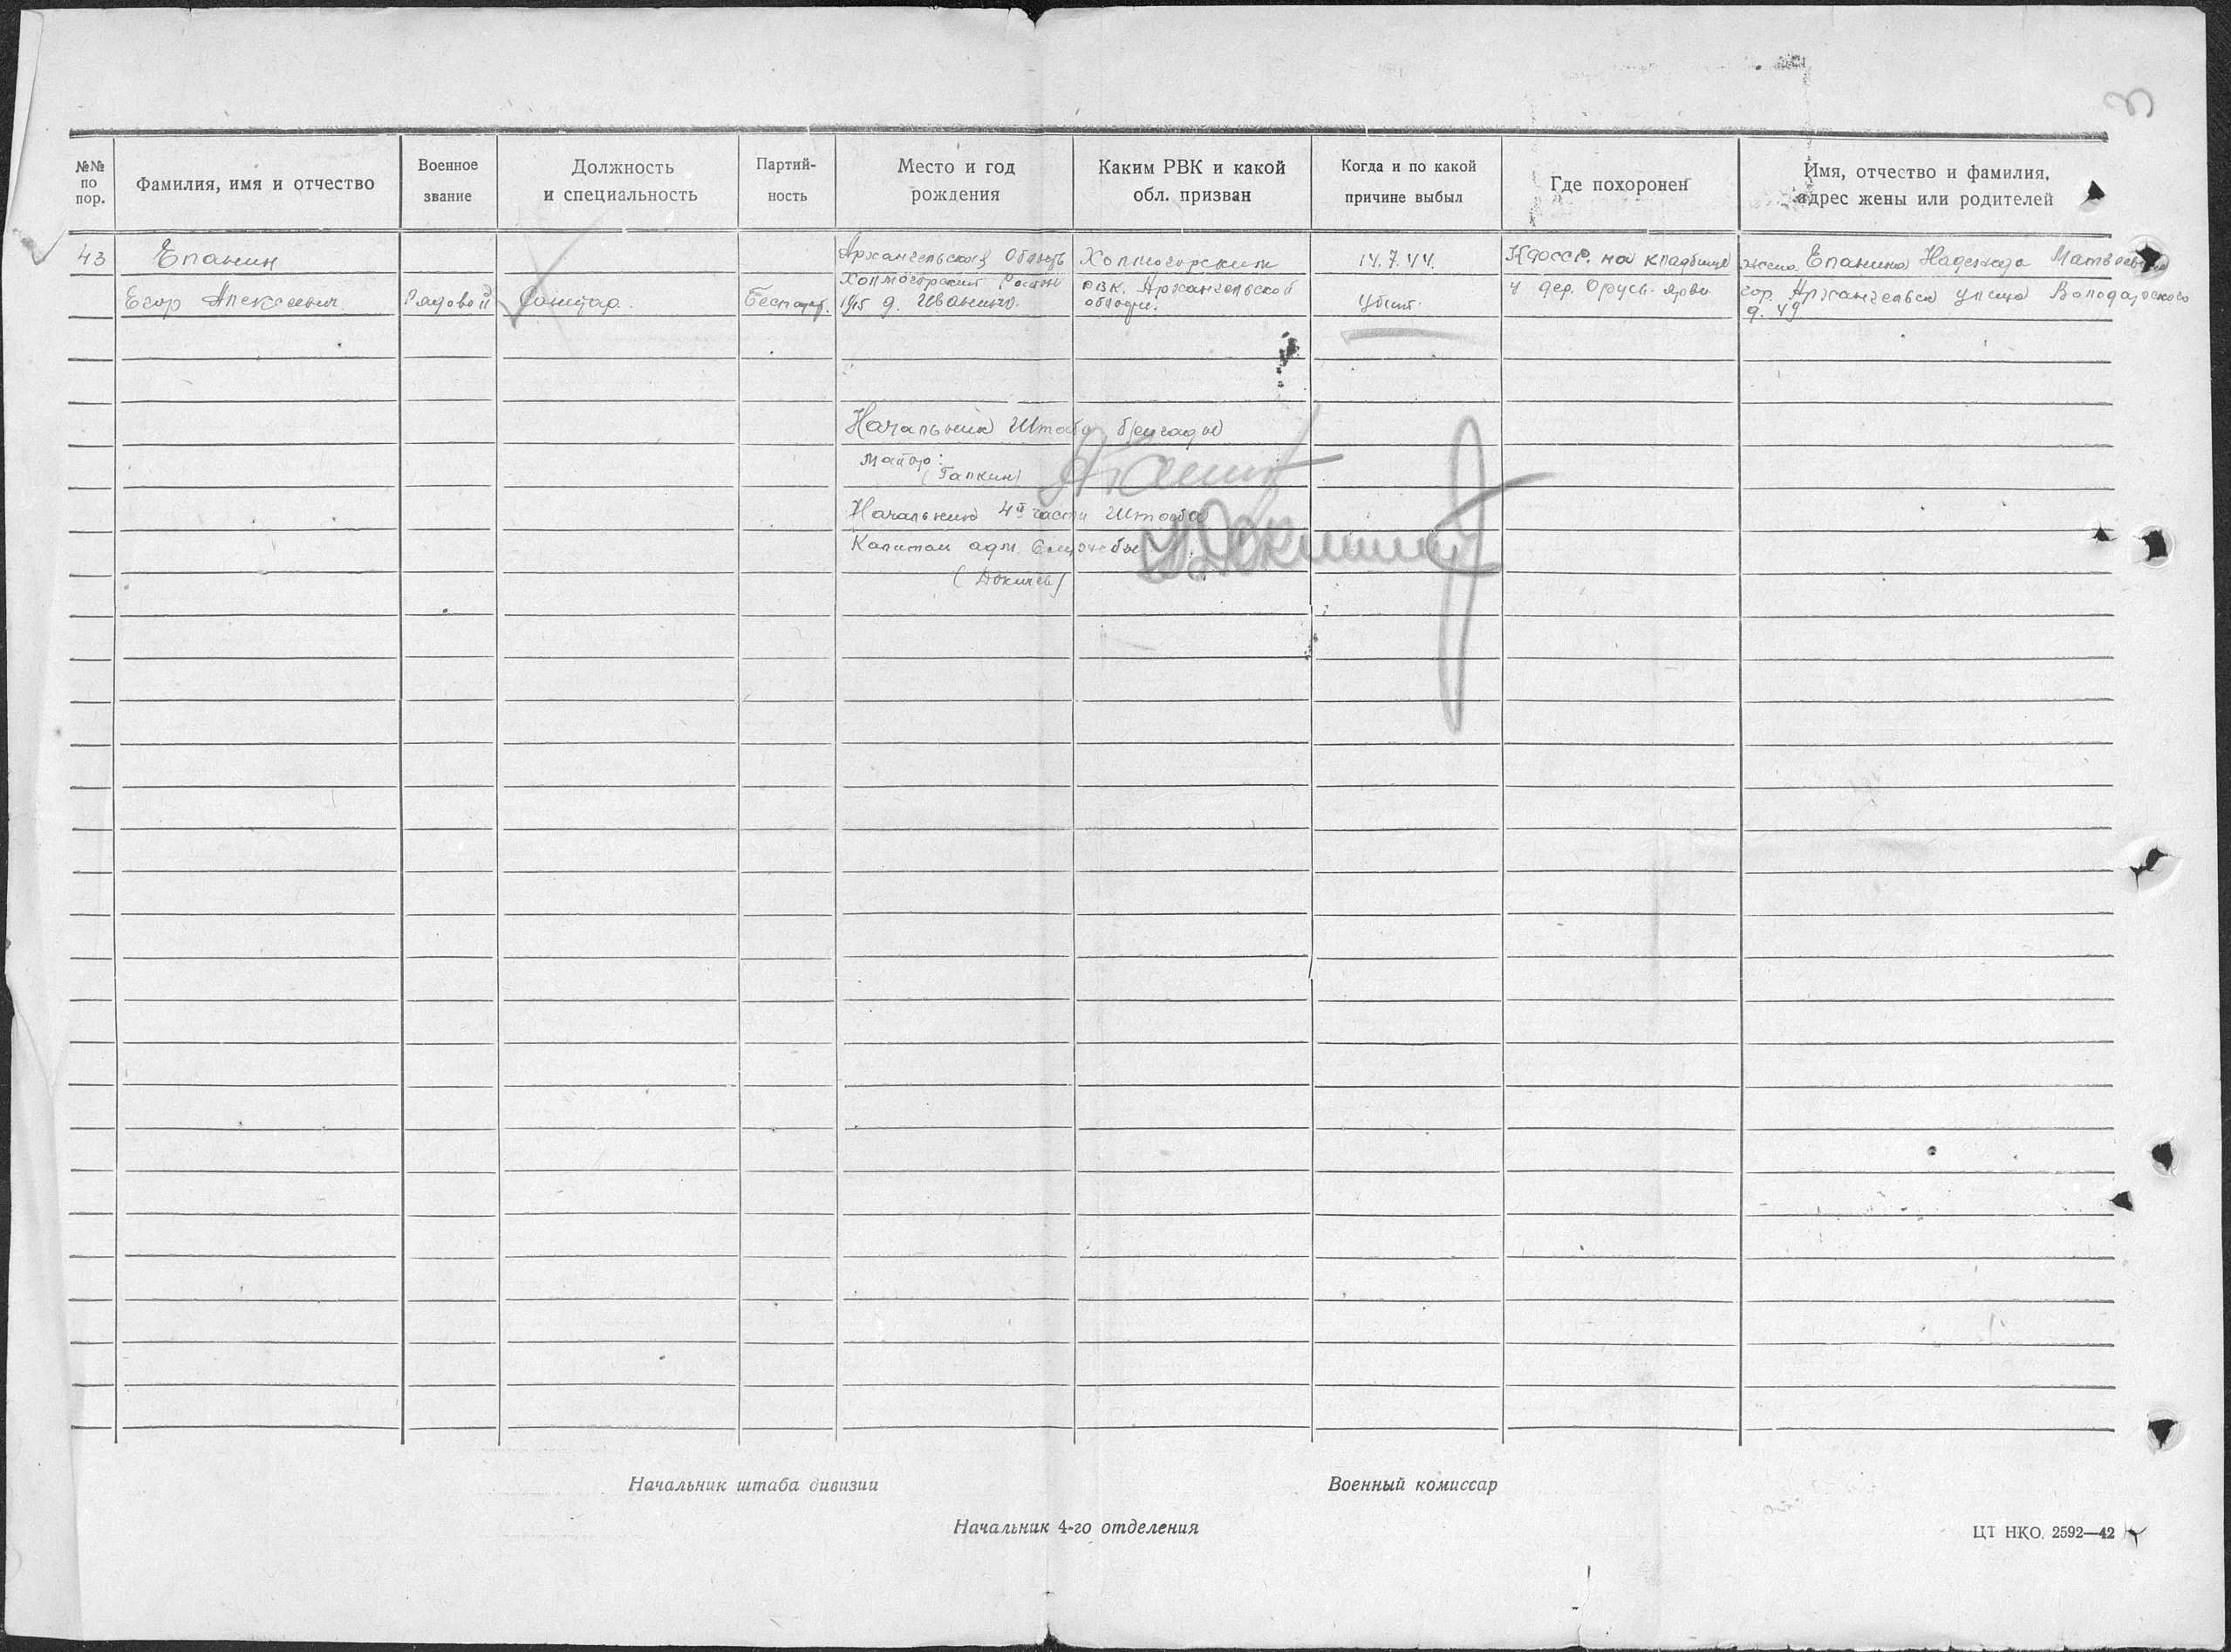 3
№№ по пор.
Фамилия, имя и отчество
Военное звание
Должность и специальность
Партий- ность
Место и год рождения
Каким РВК и какой обл. призван
Когда и по какой причине выбыл
Где похоронен
Имя, отчество и фамилия, адрес жены или родителей
43
Епанин
Егор Алексеевич
Рядовой
Санитар.
Беспарт.
Архангельская Область
Холмогорский Район
д. Иванино.
Холмогорским
РВК. Архангельской
области.
14.7.44.
убит.
КФССР. на кладбище
у дер. Орусь-ярви
жена Епанина Надежда Матвеевна
гор. Архангельск улица Володарского
д. 49
Начальник Штаба бригады
Майор:
(Галкин)
Начальник 4й части Штаба
Капитан адм. Службы
Начальник штаба дивизии
Военный комиссар
Начальник 4-го отделения
ЦТ НКО. 2592—42